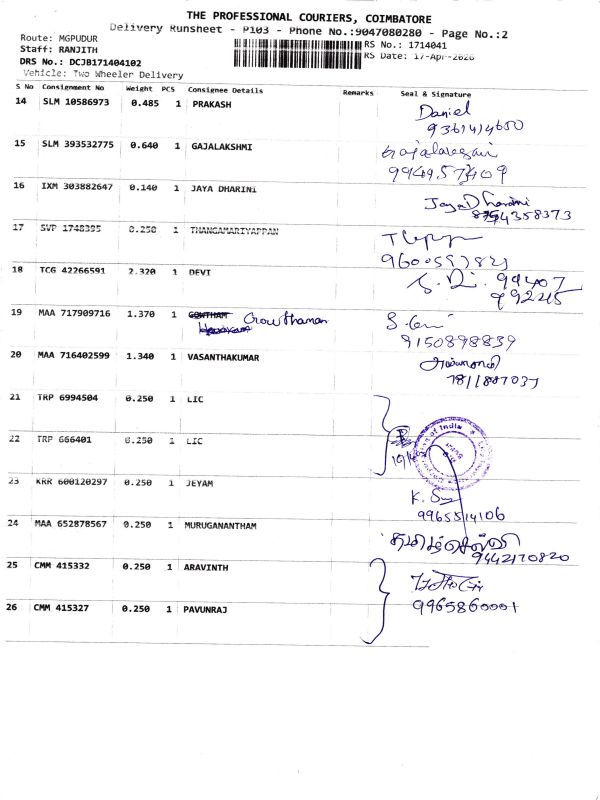 THE PROFESSIONAL COURIERS, COIMBATORE
Delivery Runsheet - P103 - Phone No.:9047080280 - Page No.:2
Route: MGPUDUR
RS No.: 1714041
Staff: RANJITH
RS Date: 17-Apr-2026
DRS No.: DCJB171404102
Vehicle: Two Wheeler Delivery
S No Consignment No Weight PCS Consignee Details Remarks Seal & Signature
14 SLM 10586973 0.485 1 PRAKASH Daniel
9361414650
15 SLM 393532775 0.640 1 GAJALAKSHMI
9944957409
16 IXM 303882647 0.140 1 JAYA DHARINI Jaya Dharini
4358373
17 SVP 1748395 0.250 1 THANGAMARIYAPPAN
18 TCG 42266591 2.320 1 DEVI 99407
99245
19 MAA 717909716 1.370 1 GOWTHAM Gowthaman
9150898839
20 MAA 716402599 1.340 1 VASANTHAKUMAR
7811887037
21 TRP 6994504 0.250 1 LIC
22 TRP 666401 0.250 1 LIC
of India
23 KRR 600120297 0.250 1 JEYAM
9965514106
24 MAA 652878567 0.250 1 MURUGANANTHAM
9442170820
25 CMM 415332 0.250 1 ARAVINTH
26 CMM 415327 0.250 1 PAVUNRAJ 9965860001